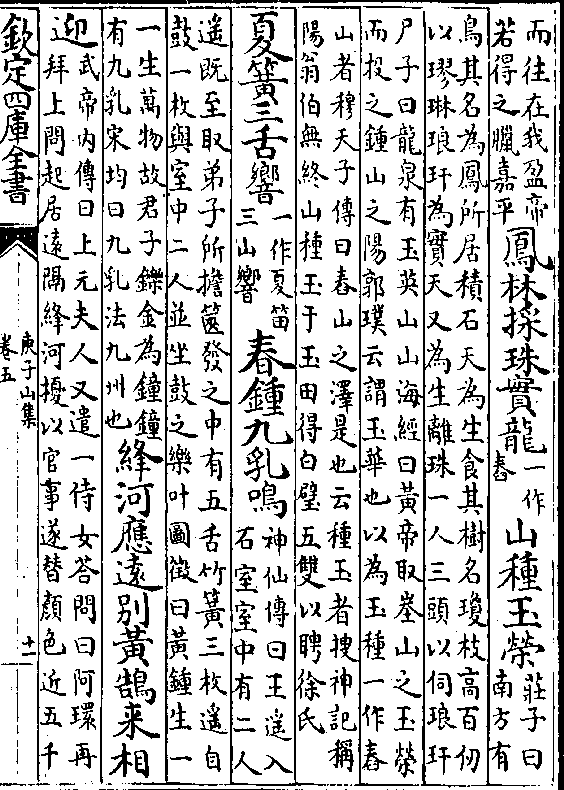 而往在我盈帝
若得之臘嘉平
鳳林採珠實龍
一作
舂
山種玉榮
莊子曰
南方有
鳥其名為鳳所居積石天為生食其樹名瓊枝高百仞
以璆琳琅玕為寶天又為生離珠一人三頭以伺琅玕
尸子曰龍泉有玉英山山海經曰黃帝取峚山之玉榮
而投之鍾山之陽郭璞云謂玉華也以為玉種一作舂
山者穆天子傳曰舂山之澤是也云種玉者搜神記稱
陽翁伯無終山種玉于玉田得白璧五雙以聘徐氏
夏簧三舌響
一作夏笛
三山響
春鍾九乳鳴
神仙傳曰王遥入
石室室中有二人
遥既至取弟子所擔篋發之中有五舌竹簧三枚遥自
鼓一枚與室中二人並坐鼓之樂叶圖徵曰黃鍾生一
一生萬物故君子鑠金為鐘鐘
有九乳宋均曰九乳法九州也
絳河應遠別黃鵠来相
迎
武帝内傳曰上元夫人又遣一侍女答問曰阿環再
拜上問起居遠隔絳河擾以官事遂替顏色近五千
欽定四庫全書
庾子山集
卷五
十一